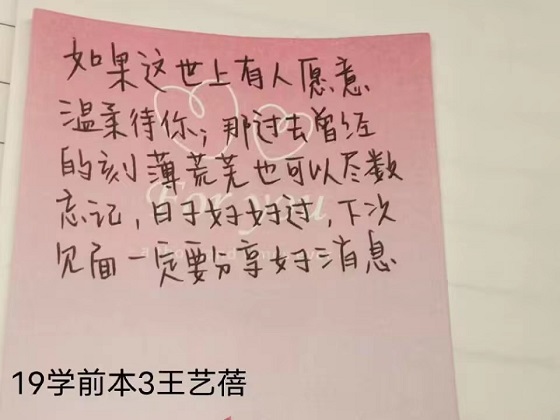 如果这世上有人愿意
温柔待你；那过去曾经
的刻薄荒芜也可以尽数
忘记，日子好好过，下次
见面一定要分享好消息
For you
19学前本3王艺蓓